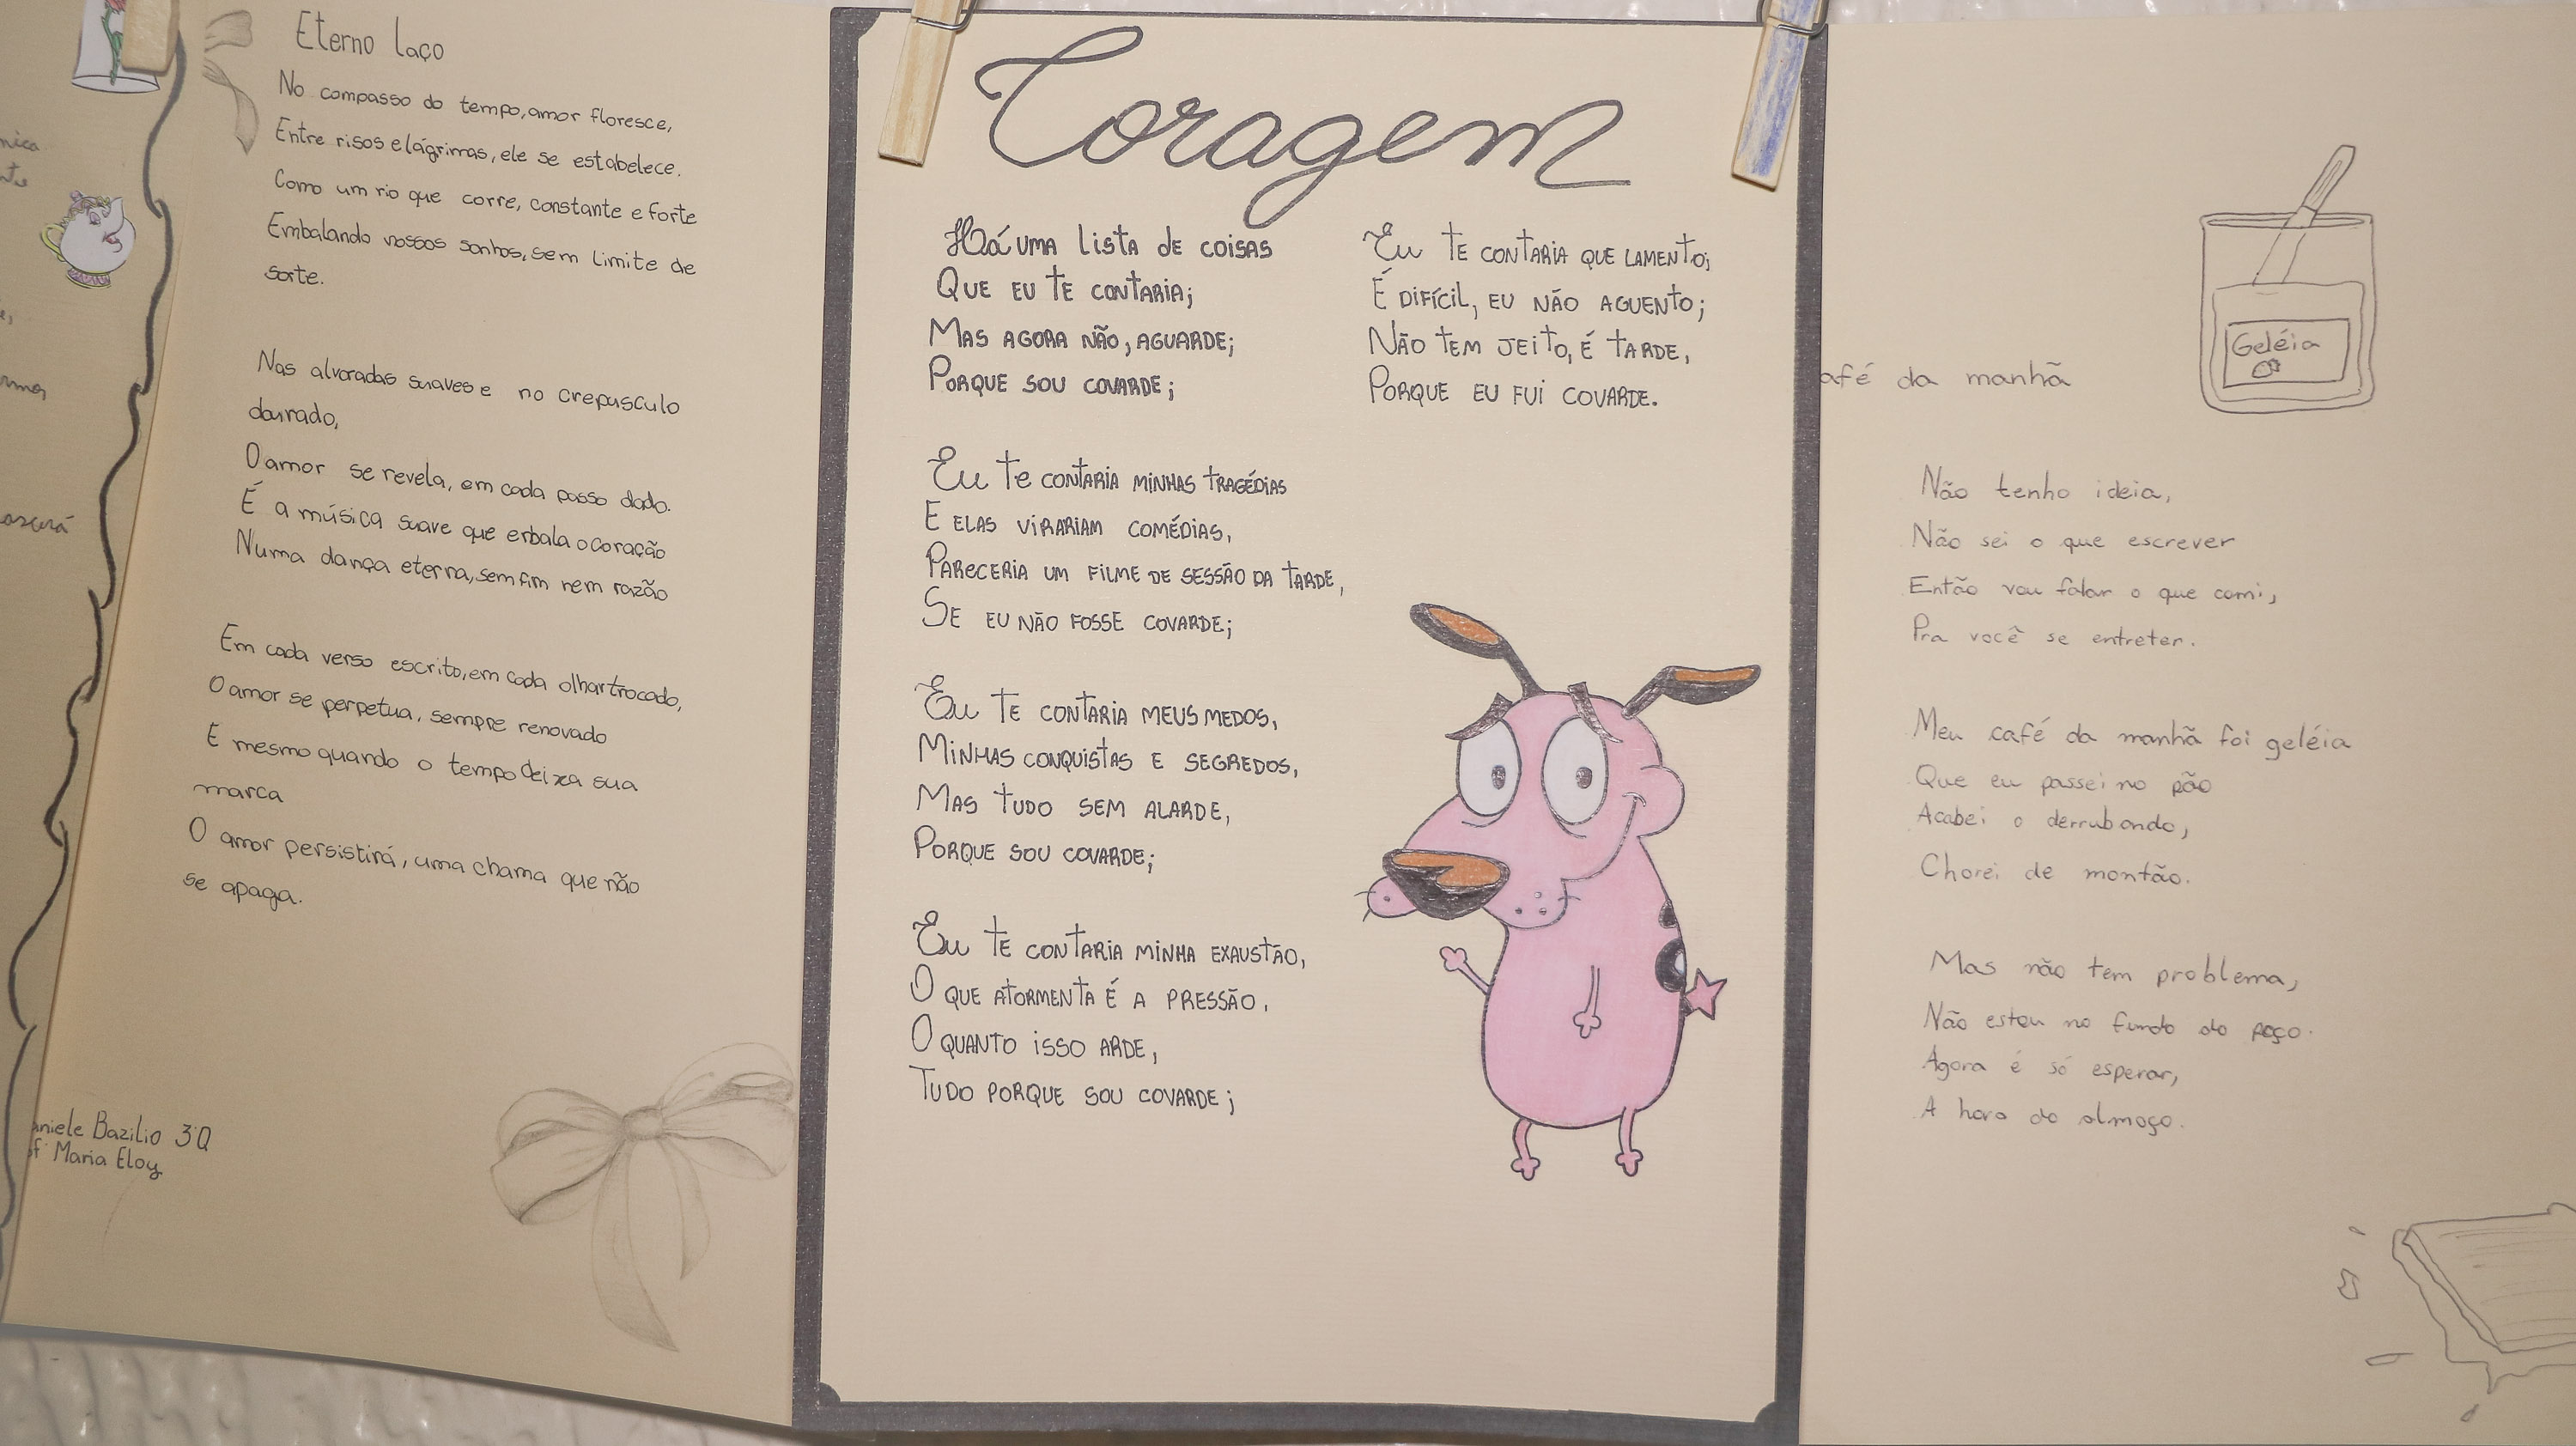 Eterno laço
No compasso do tempo, amor floresce,
Entre risos e lágrimas, ele se estabelece.
Como um rio que corre, constante e forte
Embalando nossos sonhos, sem limite de
sorte.
Nas alvoradas suaves e no crepusculo
dourado,
O amor se revela, em cada passo dado.
É a música suave que erbala o coração
Numa dança eterna, sem fim nem razão
Em cada verso escrito, em cada olhar trocado,
O amor se perpetua, sempre renovado
E mesmo quando o tempo deixa sua
marca
O amor persistirá, uma chama que não
se apaga.
aniele Bazilio 3ºQ
Maria Eloy
Coragem
Há UMA LISTA DE COISAS
QUE EU TE CONTARIA;
MAS AGORA NÃO, AGUARDE;
PORQUE SOU COVARDE;
EU TE CONTARIA MINHAS TRAGÉDIAS
E ELAS VIRARIAM COMÉDIAS,
PARECERIA UM FILME DE SESSÃO DA TARDE,
SE EU NÃO FOSSE COVARDE;
EU TE CONTARIA MEUS MEDOS,
MINHAS CONQUISTAS E SEGREDOS,
MAS TUDO SEM ALARDE,
PORQUE SOU COVARDE;
EU TE CONTARIA MINHA EXAUSTÃO,
O QUE ATORMENTA É A PRESSÃO,
O QUANTO ISSO ARDE,
TUDO PORQUE SOU COVARDE;
EU TE CONTARIA QUE LAMENTO;
É DIFÍCIL, EU NÃO AGUENTO;
NÃO TEM JEITO, É TARDE,
PORQUE EU FUI COVARDE.
afé da manhã
Geléia
Não tenho ideia,
Não sei o que escrever
Então vou falar o que comi,
Pra você se entreter.
Meu café da manhã foi geléia
Que eu passei no pão
Acabei o derrubando,
Chorei de montão.
Mas não tem problema,
Não estou no fundo do poço.
Agora é só esperar,
A hora do almoço.